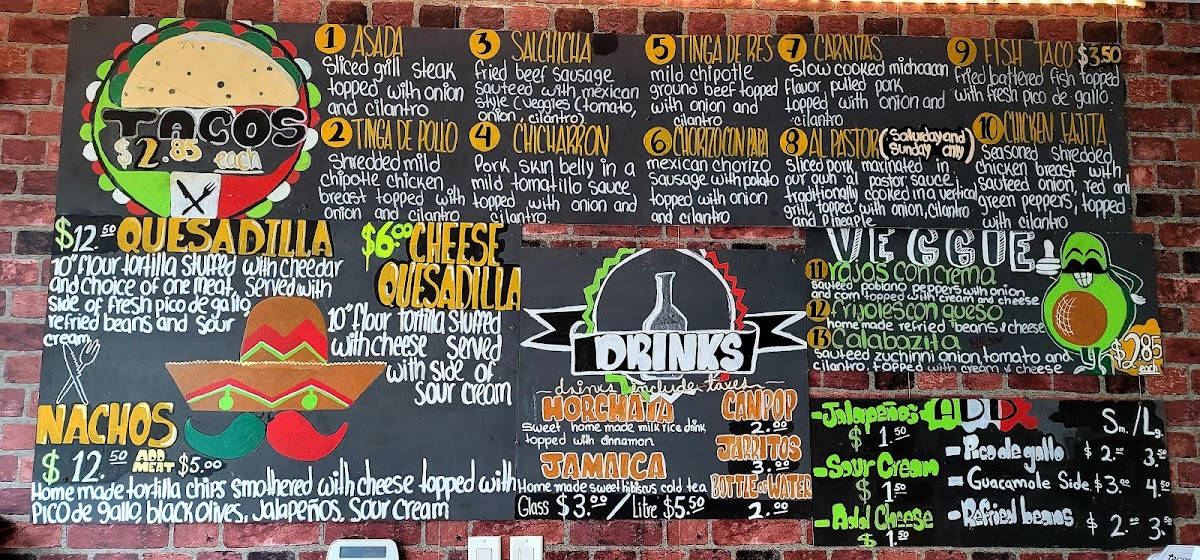 TACOS
$2.85 each
1 ASADA
Sliced grill steak
topped with onion
and cilantro
2 TINGA DE POLLO
shredded mild
chipotle chicken
breast topped with
onion and cilantro
3 SALCHICHA
fried beef sausage
sauteed with mexican
style (veggies (tomato,
onion, cilantro).
4 CHICHARRON
Pork skin belly in a
mild tomatillo sauce
topped with onion and
cilantro.
5 TINGA DE RES
mild chipotle
ground beef topped
with onion and
cilantro
6 CHORIZO CON PAPA
mexican chorizo
Sausage with potato
topped with onion
and cilantro
7 CARNITAS
Slow cooked michoacan
flavor, pulled pork
topped with onion and
cilantro
8 AL PASTOR (Saturday and
Sunday only)
Sliced pork, marinated in
our own al pastor sauce,
traditionally cooked in a vertical
grill, topped with onion, cilantro
and pineaple
9 FISH TACO $3.50
Fried battered fish topped
with fresh pico de gallo.
10 CHICKEN FAJITA
Seasoned shredded
chicken breast with
sauteed onion, red and
green peppers, topped
with cilantro
$12.50 QUESADILLA
10" flour tortilla stuffed with cheedar
and choice of one meat. Served with
side of fresh pico de gallo
refried beans and sour
cream
$6.00 CHEESE
QUESADILLA
10" flour tortilla stuffed
with cheese served
with side of
sour cream
NACHOS
$12.50 ADD
MEAT $5.00
Home made tortilla chips smothered with cheese topped with
Pico de gallo, black olives, Jalapeños, Sour Cream
DRINKS
drinks include taxes
HORCHATA
Sweet home made milk rice drink
topped with cinnamon.
JAMAICA
Home made sweet hibiscus cold tea
Glass $3.50/Litre $5.50
CAN POP
2.00
JARRITOS
3.00
BOTTLE OF WATER
2.00
VEGGIE
11 rajas con crema
sauteed pobiano peppers with onion
and corn topped with cream and cheese
12 frijoles con queso
home made refried beans & cheese
13 Calabazita NEW
sauteed zuchinni onion, tomato and
cilantro, topped with cream & cheese
$2.85
each
-Jalapeños
$1.50
-Sour Cream
$1.50
-Add Cheese
$1.50
Sm./Lg.
-Pico de gallo $2.00 3.50
-Guacamole Side. $3.00 4.50
-Refried beans $2.00 3.50